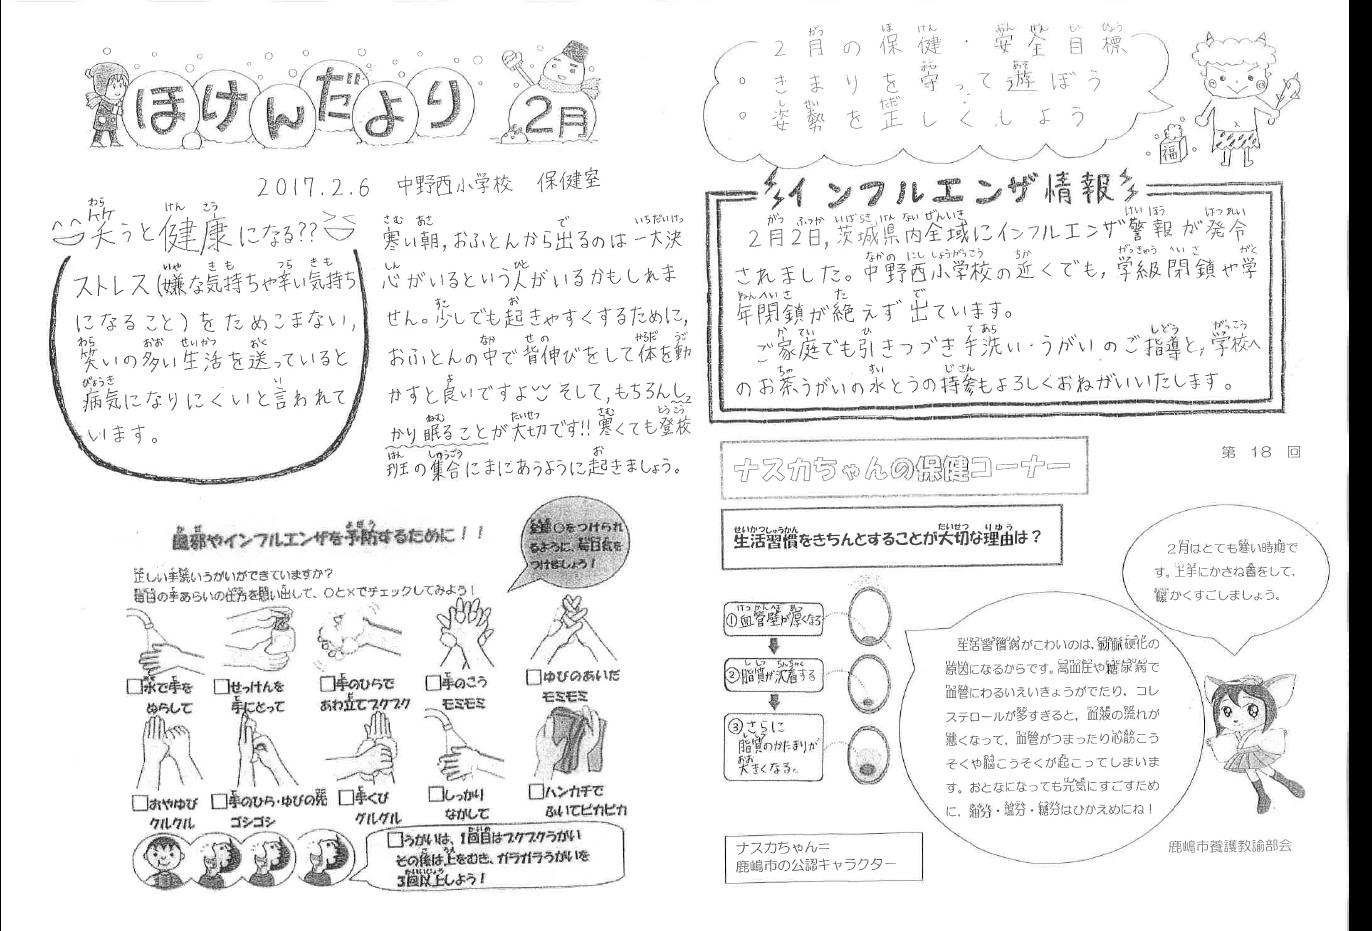 ほけんだより 2月
2017.2.6 中野西小学校 保健室
笑うと健康になる??
ストレス(嫌な気持ちや辛い気持ち
になること)をためこまない,
笑いの多い生活を送っていると
病気になりにくいと言われて
います。
寒い朝,おふとんから出るのは一大決
心がいるという人がいるかもしれま
せん。少しでも起きやすくするために,
おふとんの中で背伸びをして体を動
かすと良いですよ そして,もちろんしっ
かり眠ることが大切です!!寒くても登校
班の集合にまにあうように起きましょう。
風邪やインフルエンザを予防するために!!
全種○をつけられ
るように、毎日気を
つけましょう!
正しい手洗いうがいができていますか?
毎日の手あらいの仕方を思い出して、○と×でチェックしてみよう!
□水で手を
ぬらして
□せっけんを
手にとって
□手のひらで
あわ立てブクブク
□手のこう
モミモミ
□ゆびのあいだ
モミモミ
□おやゆび
クルクル
□手のひら・ゆびの先
ゴシゴシ
□手くび
グルグル
□しっかり
ながして
□ハンカチで
ふいてピカピカ
□うがいは、1回目はブクブクうがい
その後は上をむき、ガラガラうがいを
3回以上しよう!
2月の保健・安全目標
○きまりを守って遊ぼう
○姿勢を正しくしよう
福
インフルエンザ情報
2月2日,茨城県内全域にインフルエンザ警報が発令
されました。中野西小学校の近くでも,学級閉鎖や学
年閉鎖が絶えず出ています。
ご家庭でも引きつづき手洗い・うがいのご指導と,学校へ
のお茶うがいの水とうの持参もよろしくおねがいいたします。
第 18 回
ナスカちゃんの保健コーナー
生活習慣をきちんとすることが大切な理由は?
2月はとても寒い時期で
す。上手にかさね着をして、
暖かくすごしましょう。
①血管壁が厚くなる
②脂質が沈着する
③さらに
脂質のかたまりが
大きくなる。
生活習慣病がこわいのは、動脈硬化の
原因になるからです。高血圧や糖尿病で
血管にわるいえいきょうがでたり、コレ
ステロールが多すぎると、血液の流れが
悪くなって、血管がつまったり心筋こう
そくや脳こうそくが起こってしまいま
す。おとなになっても元気にすごすため
に、油分・塩分・糖分はひかえめにね!
ナスカちゃん=
鹿嶋市の公認キャラクター
鹿嶋市養護教諭部会